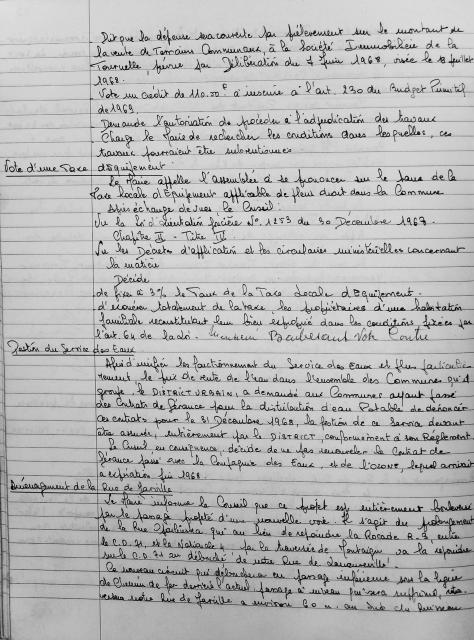 Dit que la dépense sera couverte par prélèvement sur le montant de
la vente de Terrains Communaux, à la Société Immobilière de la
Tournelle, prévue par Délibération du 7 Juin 1968, visée le 18 Juillet
1968.
Vote un crédit de 110.000 F à inscrire à l'art. 230 du Budget Primitif
de 1969.
Demande l'autorisation de procéder à l'adjudication des travaux
Charge le Maire de rechercher les conditions dans lesquelles, ces
travaux pourraient être subventionnés
Vote d'une Taxe d'Equipement
Le Maire appelle l'assemblée à se prononcer sur le taux de la
Taxe locale d'Equipement applicable de plein droit dans la Commune
Après échange de vues, le Conseil :
Vu la Loi d'orientation foncière N° 1253 du 30 Décembre 1967
Chapitre II - Titre IV
Vu les Décrets d'application et les circulaires ministérielles concernant
la matière
Décide
de fixer à 3% le Taux de la Taxe Locale d'Equipement.
d'exonérer totalement de la taxe, les propriétaires d'une habitation
familiale reconstituant leur bien exproprié dans les conditions fixées par
l'art. 64 de la loi. Monsieur Vote Contre
Gestion du Service des Eaux
Afin d'unifier les fonctionnement du Service des Eaux et plus particuliè-
rement, le prix de vente de l'eau dans l'ensemble des Communes qu'il
groupe, le DISTRICT URBAIN, a demandé aux Communes ayant passé
des Contrats de Gérance pour la distribution d'eau Potable de dénoncer
ces contrats pour le 31 Décembre 1968, la gestion de ce Service devant
être assurée, entièrement par le DISTRICT, conformément à son Règlement.
Le Conseil en conséquence, décide de ne pas renouveler le Contrat de
Gérance passé avec la Compagnie des Eaux, et de l'OZONE, lequel arrivait
à expiration fin 1968.
Aménagement de la Rue de
Le Maire informe le Conseil que ce projet est entièrement bouleversé
par le passage projeté d'une nouvelle voie. Il s'agit du prolongement
de la Rue qui au lieu de rejoindre la Rocade R.3, entre
le C.D. 71, et la Nationale 4 par la traversée de Montaigu va la rejoindre
sur le C.D. 71 au débouché de notre Rue de
Ce nouveau circuit qui débouchera en passage supérieur sous la ligne
de Chemin de fer derrière l'actuel passage à niveau qui sera supprimé,
notre Rue de à environ 60 m. au Sud du Ruisseau